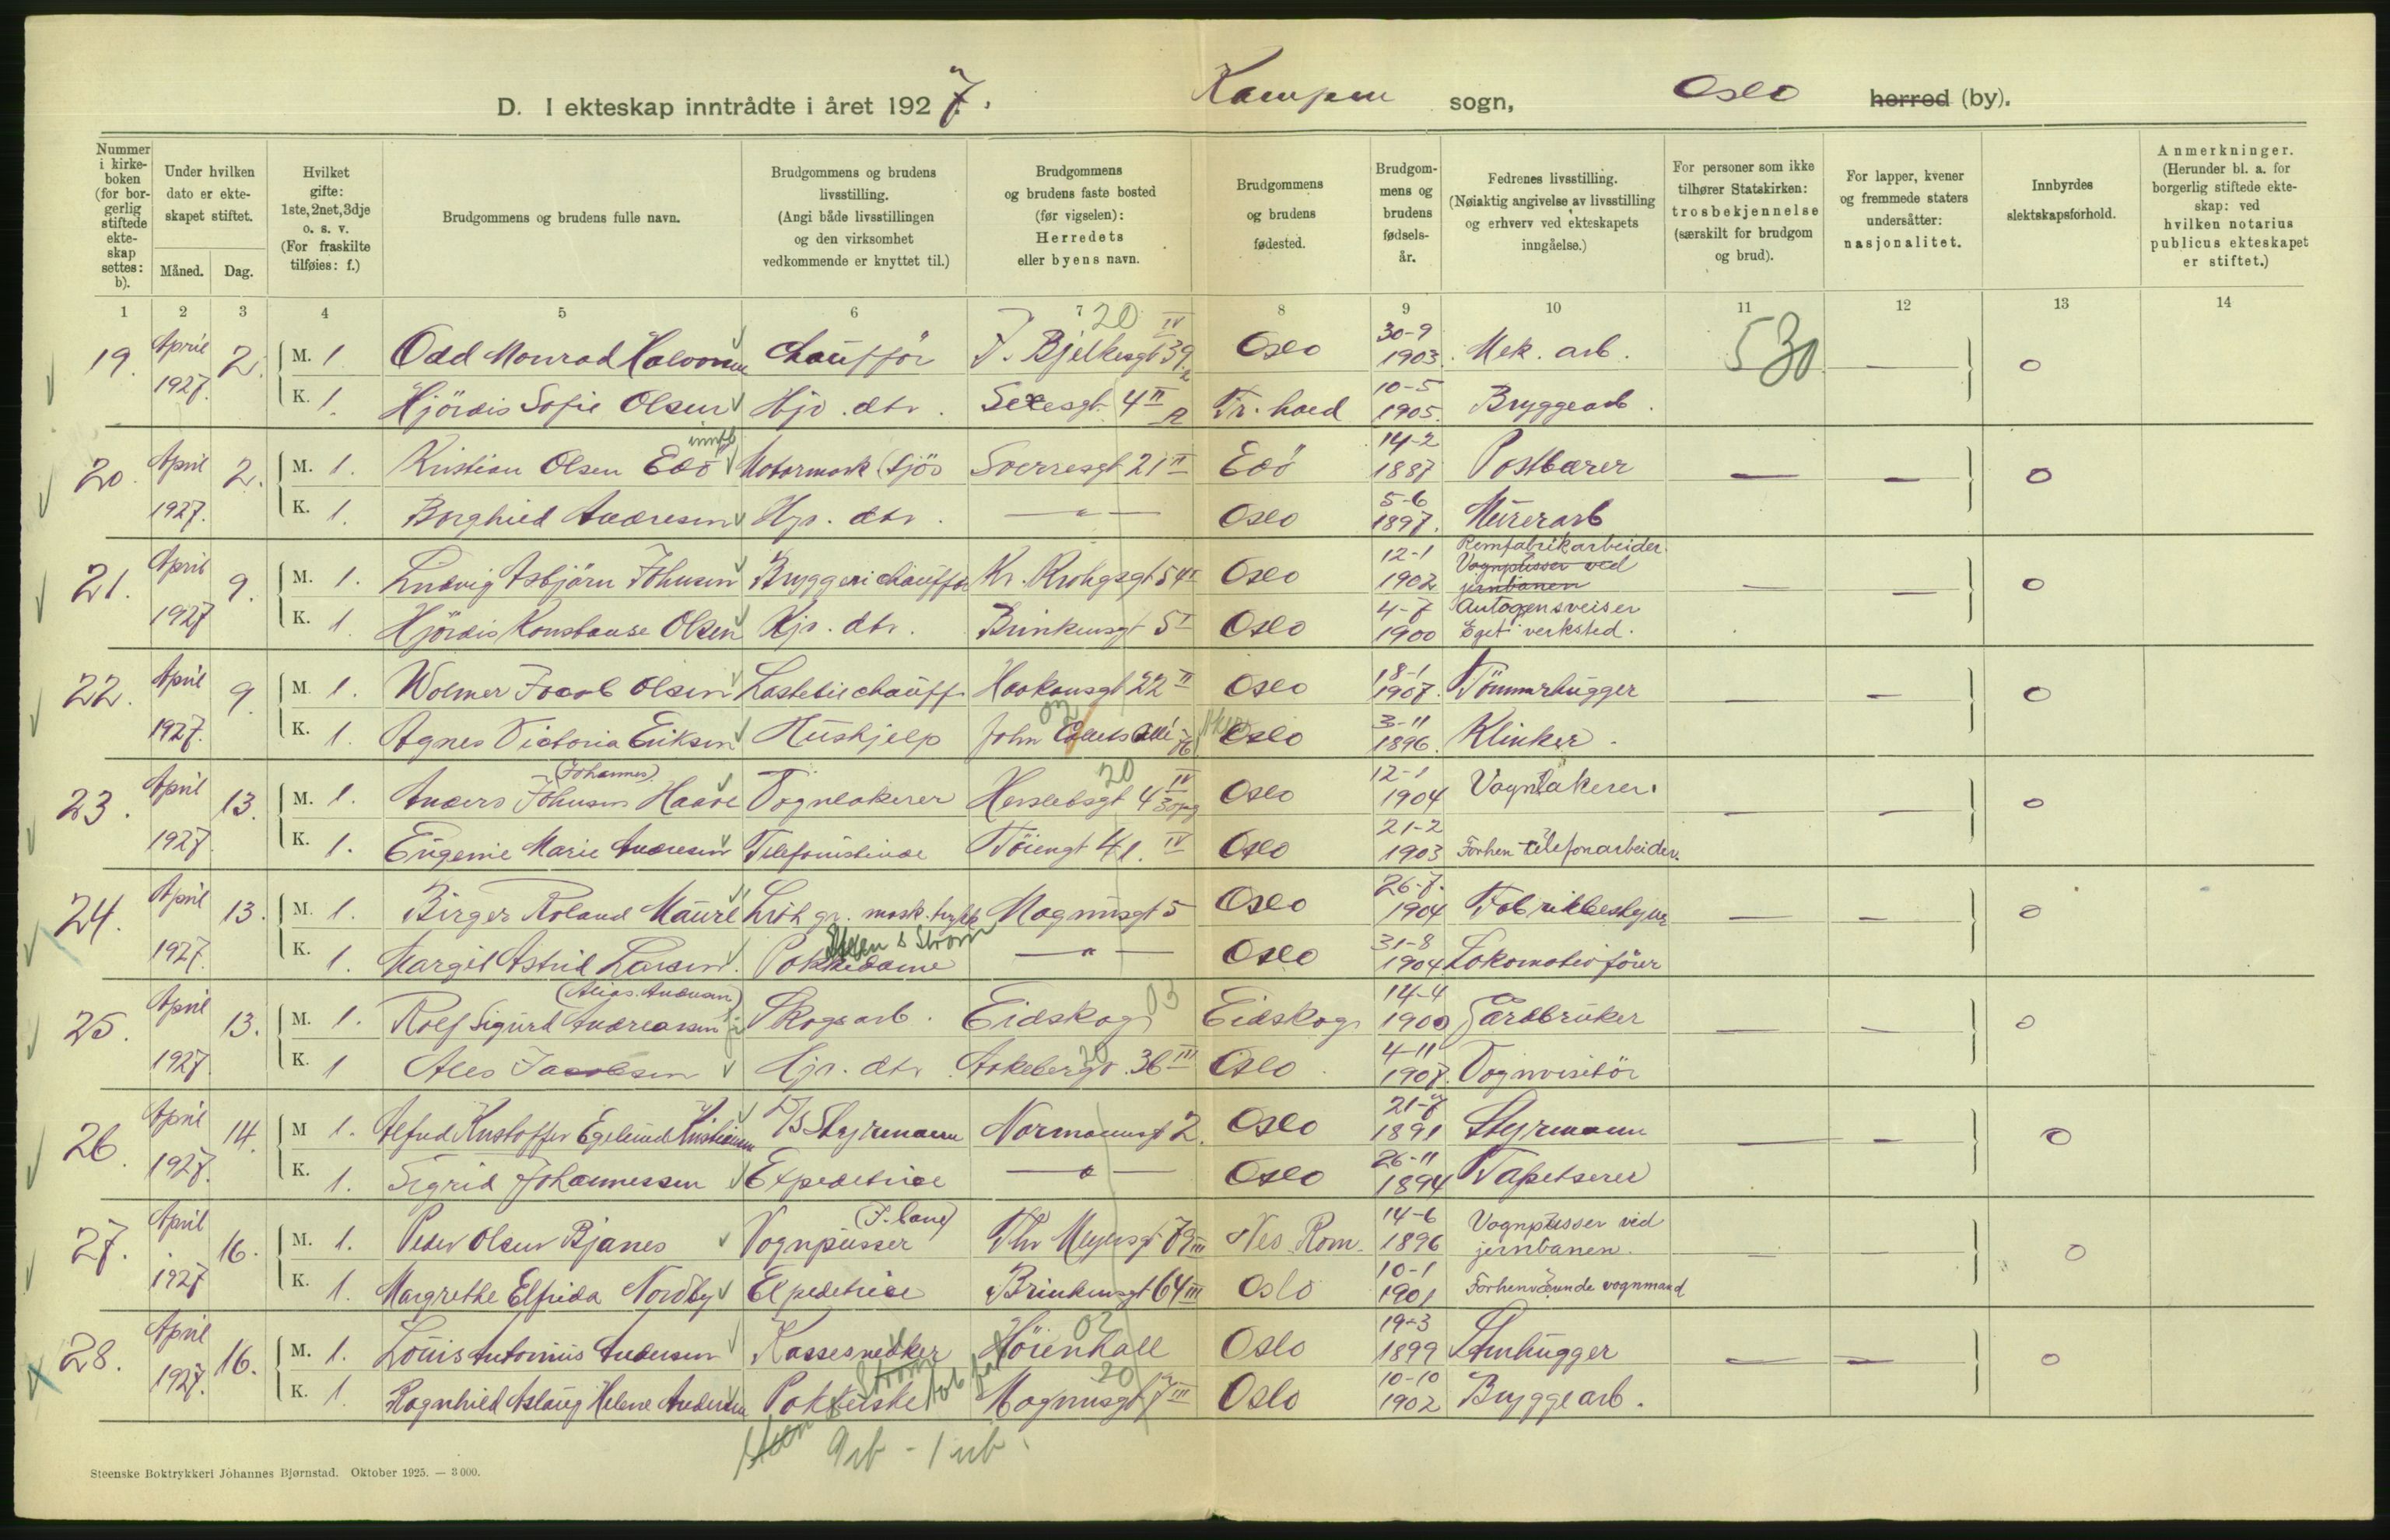 D. I ekteskap inntrådte i året 1927. Kampen sogn, Oslo herred (by).
Nummer i kirke-boken (for bor-gerlig stiftede ekte-skap settes: b).
Under hvilken dato er ekte-skapet stiftet.
Måned. Dag.
Hvilket gifte: 1ste, 2net, 3dje o. s. v. (For fraskilte tilføies: f.)
Brudgommens og brudens fulle navn.
Brudgommens og brudens livsstilling. (Angi både livsstillingen og den virksomhet vedkommende er knyttet til.)
Brudgommens og brudens faste bosted (før vigselen): Herredets eller byens navn.
Brudgommens og brudens fødested.
Brudgom-mens og brudens fødsels-år.
Fedrenes livsstilling. (Nøiaktig angivelse av livsstilling og erhverv ved ekteskapets inngåelse.)
For personer som ikke tilhører Statskirken: trosbekjennelse (særskilt for brudgom og brud).
For lapper, kvener og fremmede staters undersåtter: nasjonalitet.
Innbyrdes slektskapsforhold.
Anmerkninger. (Herunder bl. a. for borgerlig stiftede ekte-skap: ved hvilken notarius publicus ekteskapet er stiftet.)
1 2 3 4 5 6 7 8 9 10 11 12 13 14
20
19. April 1927. 2. M. 1 Odd Monrad Halvorsen Chauffør J. Bjelkesgt 39 IV Oslo 30-9 1903. Mek. arb. 530 — 0
K. 1. Hjördis Sofie Olsen Hjv. dtr. Sexesgt. 4 II Tr.hæd 10-5 1905. Bryggearb.
20. April 1927. 2. M. 1. Kristian Olsen Edö Motormask (sjös Sverresgt 21 II Edö 14-2 1887 Postbærer — — 0
K. 1. Borghild Andresen Hjv. dtr. — " — Oslo 5-6 1897. Murerarb
21. April 1927 9. M. 1. Ludvig Asbjörn Johnsen Bryggerichauffør Kr. Krohgsgt 54 II Oslo 12-1 1902 Remfabrikarbeider. Vognpusser ved jernbanen — — 0
K. 1. Hjördis Konstanse Olsen Hjv. dtr. Brinkensgt 5 I Oslo 4-7 1900 Autogensveiser Eget verksted.
22. April 1927. 9. M. 1. Wolmer Jacob Olsen Lastebilchauff. Haakonsgt 22 II Oslo 18-1 1907. Tömmerhugger — — 0
K. 1. Agnes Victoria Eriksen Hushjelp John Colletts allé 76 Oslo 3-11 1896. Klinker.
(Johannes) 20
23. April 1927. 13. M. 1. Anders Johnsen Haave Vognlakerer Herslebsgt 4 IV Oslo 12-1 1904 Vognlakerer. — — 0
K. 1. Eugenie Marie Andresen Telefonistinde Töiengt 41. IV Oslo 21-2 1903 Forhen telefonarbeider.
24. April 1927. 13. M. 1. Birger Roland Maure Lith gr. mask. trykk Magnusgt 5 Oslo 26-7. 1904 Fabrikkbestyrer — — 0
Steen & Ström
K. 1. Margit Astrid Larsen. Pakkedame — " — Oslo 31-8 1904 Lokomotivförer
25. April 1927. 13. M. 1. Rolf Sigurd Andreassen Skogsarb. Eidskog 03 Eidskog 14-4 1900 Gårdbruker — — 0
K. 1 Alis Jacobsen Hjv. dtr. Aakebergv. 36 III 20 Oslo 4-11 1907. Vognvisitör
26. April 1927. 14. M 1. Alfred Kristoffer Egelund Kristiansen D/S Styrmann Normannsgt 2. Oslo 21-7 1891 Styrmann — — 0
K. 1. Sigrid Johannessen Expeditrice — " — Oslo 26-11 1894 Tapetserer
27. April 1927 16. M. 1. Peder Olsen Bjanes Vognpusser (J. bane) Thv Meyersgt 79 III Nes Rom. 14-6 1896 Vognpusser ved jernbanen. — — 0
K. 1. Margrethe Elfrida Nordby Expeditrice Brinkensgt 64 III Oslo 10-1 1901 Forhenværende vognmand
02
28. April 1927. 16. M. 1. Louis Antonius Andersen Kassesnedker Höienhall Oslo 19-3 1899 Stenhugger — — 0
20
K. 1. Ragnhild Aslaug Helene Andersen Pakkerske Magnusgt 7 III Oslo 10-10 1902 Bryggearb.
Steen Ström
9 ub - 1 ub.
Steenske Boktrykkeri Johannes Bjørnstad. Oktober 1925. — 3 000.